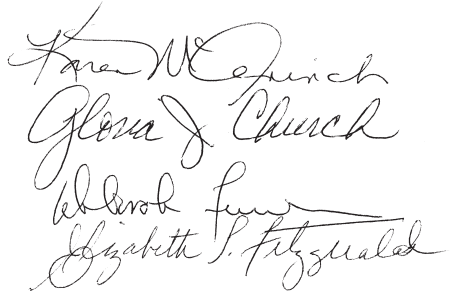 Karen
Gloria J. Church
Deborah
Elizabeth S. Fitzgerald